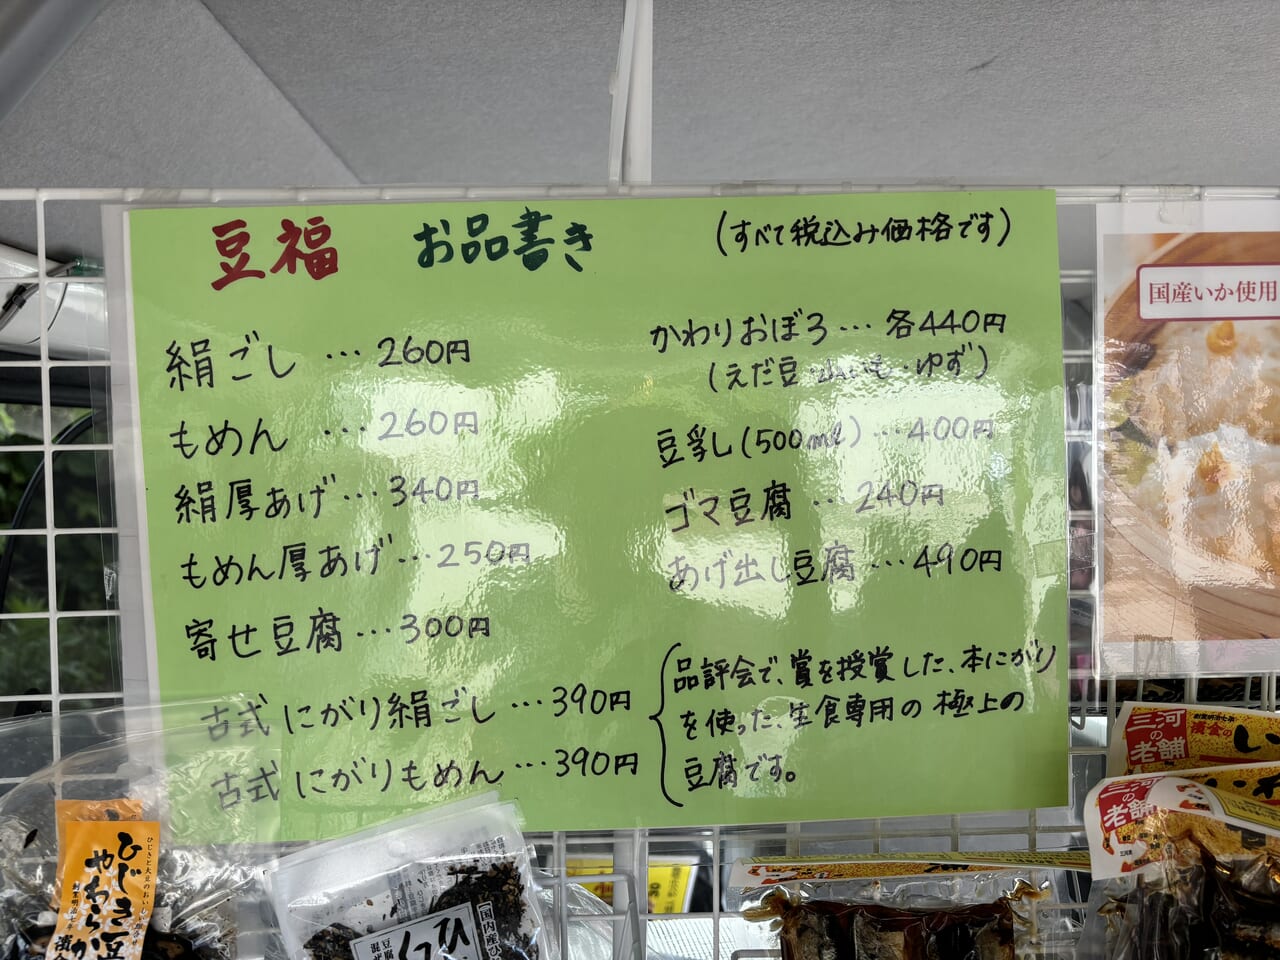 豆福 お品書き (すべて税込み価格です)
絹ごし … 260円
もめん … 260円
絹厚あげ … 340円
もめん厚あげ … 250円
寄せ豆腐 … 300円
古式にがり絹ごし … 390円
古式にがりもめん … 390円
かわりおぼろ … 各440円
(えだ豆・山いも・ゆず)
豆乳し(500ml) … 400円
ゴマ豆腐 … 240円
あげ出し豆腐 … 490円
品評会で、賞を授賞した、本にがり
を使った、生食専用の極上の
豆腐です。
国産いか使用
三河の老舗
三河の老舗
ひじき豆
やわらか